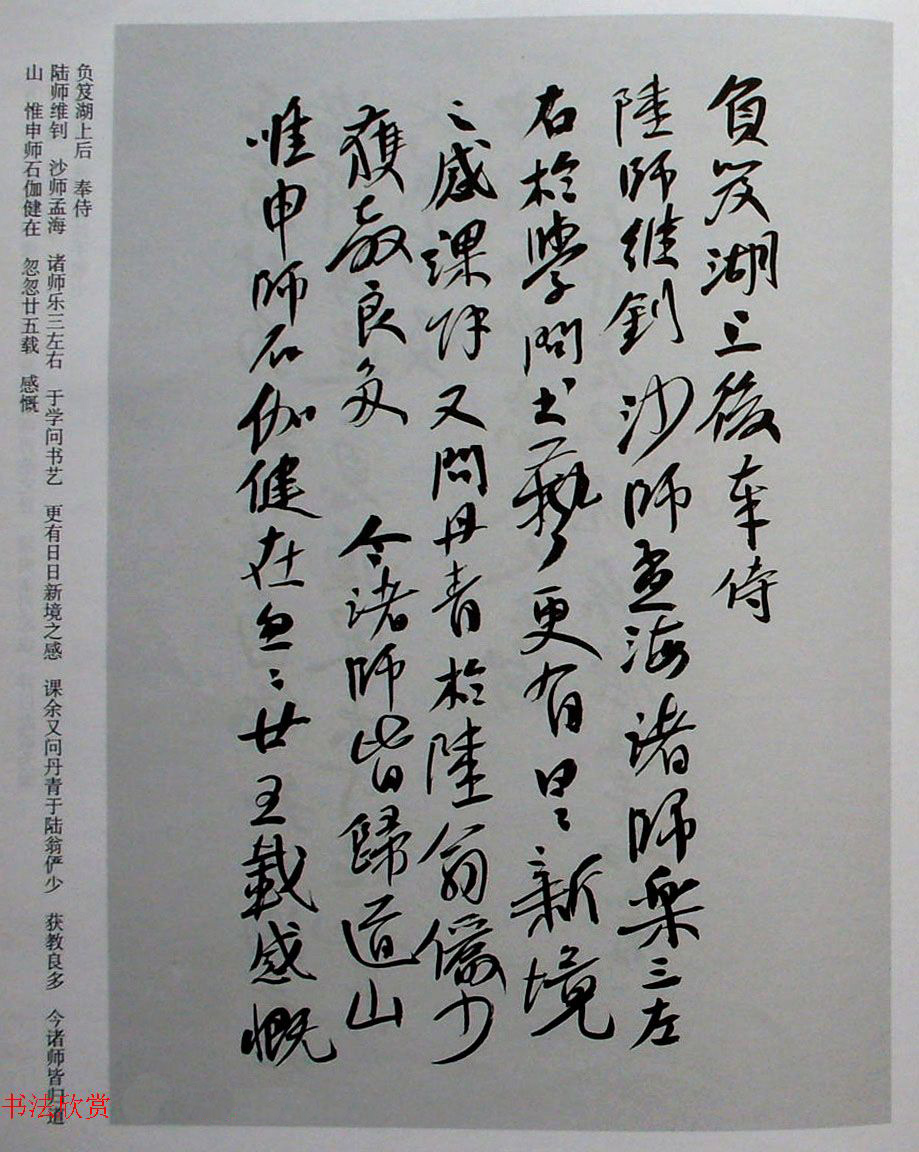 負笈湖上後奉侍
陸師維釗沙師孟海諸師樂三左
右於學問書藝更有日日新境
之感課餘又問丹青於陸翁儼少
獲教良多 今諸師皆歸道山
唯申師石伽健在忽忽廿五載感慨
负笈湖上后 奉侍
陆师维钊 沙师孟海 诸师乐三左右 于学问书艺 更有日日新境之感 课余又问丹青于陆翁俨少 获教良多 今诸师皆归道
山 惟申师石伽健在 忽忽廿五载 感慨
书法欣赏